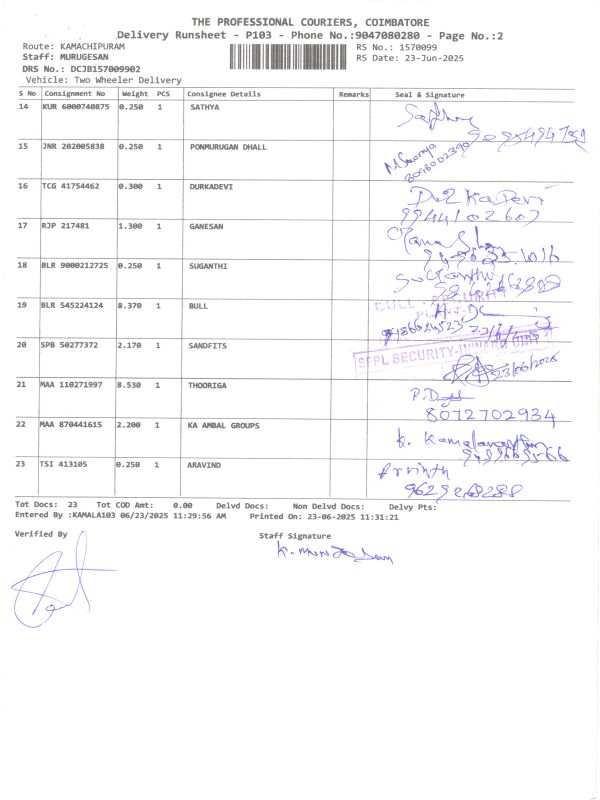 THE PROFESSIONAL COURIERS, COIMBATORE
Delivery Runsheet - P103 - Phone No.:9047080280 - Page No.:2
Route: KAMACHIPURAM RS No.: 1570099
Staff: MURUGESAN RS Date: 23-Jun-2025
DRS No.: DCJB157009902
Vehicle: Two Wheeler Delivery
S No Consignment No Weight PCS Consignee Details Remarks Seal & Signature
14 KUR 6000740875 0.250 1 SATHYA
15 JNR 202005838 0.250 1 PONMURUGAN DHALL
16 TCG 41754462 0.300 1 DURKADEVI
9944102607
17 RJP 217481 1.300 1 GANESAN
18 BLR 9000212725 0.250 1 SUGANTHI
19 BLR 545224124 8.370 1 BULL
20 SPB 50277372 2.170 1 SANDFITS SFPL SECURITY-INWARD UNIT
21 MAA 110271997 8.530 1 THOORIGA
8072702934
22 MAA 870441615 2.200 1 KA AMBAL GROUPS
23 TSI 413105 0.250 1 ARAVIND Arvinth
9629268288
Tot Docs: 23 Tot COD Amt: 0.00 Delvd Docs: Non Delvd Docs: Delvy Pts:
Entered By :KAMALA103 06/23/2025 11:29:56 AM Printed On: 23-06-2025 11:31:21
Verified By Staff Signature